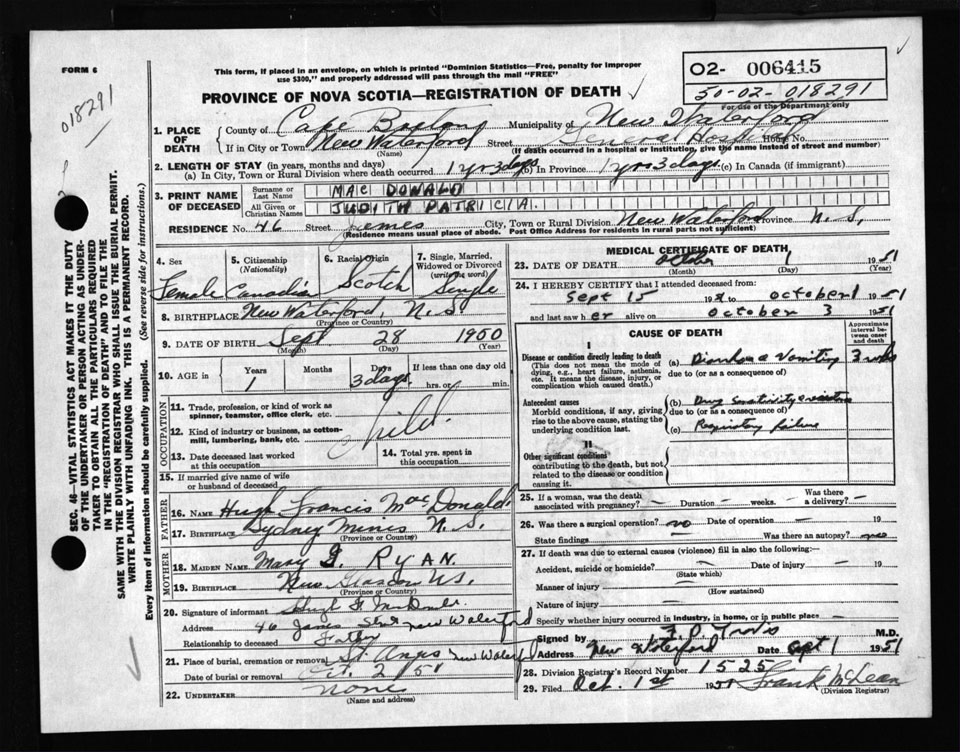 FORM 6
This form, if placed in an envelope, on which is printed "Dominion Statistics—Free, penalty for improper
use $300," and properly addressed will pass through the mail "FREE"
PROVINCE OF NOVA SCOTIA—REGISTRATION OF DEATH
O2- 006415
50-02-018291
For use of the Department only
018291
SEC. 46—VITAL STATISTICS ACT MAKES IT THE DUTY
OF THE UNDERTAKER OR PERSON ACTING AS UNDER-
TAKER TO OBTAIN ALL THE PARTICULARS REQUIRED
IN THE "REGISTRATION OF DEATH" AND TO FILE THE
SAME WITH THE DIVISION REGISTRAR WHO SHALL ISSUE THE BURIAL PERMIT.
WRITE PLAINLY WITH UNFADING INK. THIS IS A PERMANENT RECORD.
Every item of information should be carefully supplied. (See reverse side for instructions.)
1. PLACE OF DEATH County of Cape Breton Municipality of New Waterford
If in City or Town New Waterford (Name) Street General Hospital House No.
(If death occurred in a hospital or institution, give the name instead of street and number)
2. LENGTH OF STAY (in years, months and days)
(a) In City, Town or Rural Division where death occurred 1 yr 3 days (b) In Province 1 yrs 3 days (c) In Canada (if immigrant)
3. PRINT NAME OF DECEASED Surname or Last Name MAC DONALD
All Given or Christian Names JUDITH PATRICIA.
RESIDENCE No. 46 Street James City, Town or Rural Division New Waterford Province N. S.
(Residence means usual place of abode. Post Office Address for residents in rural parts not sufficient)
4. Sex Female
5. Citizenship (Nationality) Canadian
6. Racial Origin Scotch
7. Single, Married, Widowed or Divorced (write the word) Single
8. BIRTHPLACE New Waterford, N. S.
(Province or Country)
9. DATE OF BIRTH Sept 28 1950
(Month) (Day) (Year)
10. AGE in Years 1 Months Days 3 days If less than one day old hrs. or min.
OCCUPATION
11. Trade, profession, or kind of work as spinner, teamster, office clerk, etc. Child
12. Kind of industry or business, as cotton-mill, lumbering, bank, etc.
13. Date deceased last worked at this occupation
14. Total yrs. spent in this occupation
15. If married give name of wife or husband of deceased
FATHER
16. NAME Hugh Francis MacDonald
17. BIRTHPLACE Sydney Mines N. S.
(Province or Country)
MOTHER
18. MAIDEN NAME Mary G. RYAN.
19. BIRTHPLACE New Glasgow NS.
(Province or Country)
20. Signature of informant
Address 46 James New Waterford
Relationship to deceased Father
21. Place of burial, cremation or removal New Waterford
Date of burial or removal Oct. 2 51
22. UNDERTAKER none
(Name and address)
MEDICAL CERTIFICATE OF DEATH
23. DATE OF DEATH October 1 1951
(Month) (Day) (Year)
24. I HEREBY CERTIFY that I attended deceased from:
Sept 15 1951 to October 1 1951
and last saw her alive on October 3 1951
CAUSE OF DEATH
Approximate interval between onset and death
I
Disease or condition directly leading to death
(This does not mean the mode of dying, e.g., heart failure, asthenia, etc. It means the disease, injury, or complication which caused death.)
(a) Diarrhoea Vomiting 3 wks
due to (or as a consequence of)
Antecedent causes
Morbid conditions, if any, giving rise to the above cause, stating the underlying condition last.
(b) Drug Sensitivity
due to (or as a consequence of)
(c) Respiratory failure
II
Other significant conditions contributing to the death, but not related to the disease or condition causing it.
25. If a woman, was the death associated with pregnancy? — Duration — weeks. — Was there a delivery? —
26. Was there a surgical operation? no Date of operation — 19
State findings Was there an autopsy? no
27. If death was due to external causes (violence) fill in also the following:—
Accident, suicide or homicide? — Date of injury — 19
(State which)
Manner of injury —
(How sustained)
Nature of injury —
Specify whether injury occurred in industry, in home, or in public place —
Signed by M.D.
Address New Waterford Date Sept 1 1951
28. Division Registrar's Record Number 1525
29. Filed Oct. 1st 1951 Frank McLean
(Division Registrar)